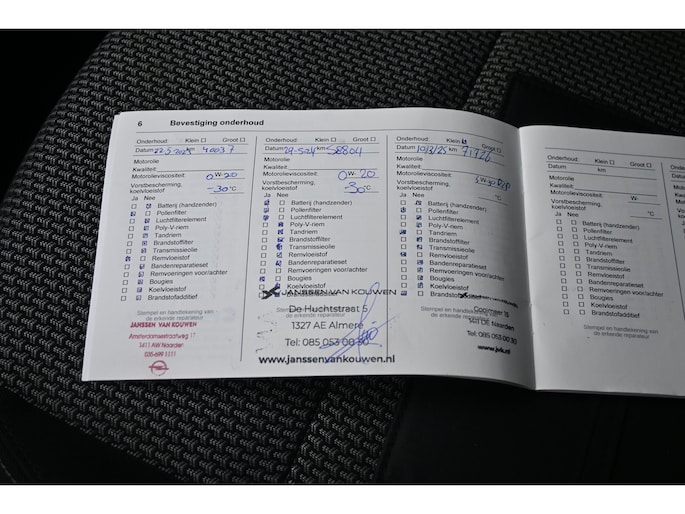 6 Bevestiging onderhoud
Onderhoud: Klein Groot
Datum km 40037
Motorolie
Kwaliteit:
Motorolieviscositeit: 0 W- 20
Vorstbescherming,
koelvloeistof -30 °C
Ja Nee
Batterij (handzender)
Pollenfilter
Luchtfilterelement
Poly-V-riem
Tandriem
Brandstoffilter
Transmissieolie
Remvloeistof
Bandenreparatieset
Remvoeringen voor/achter
Bougies
Koelvloeistof
Brandstofadditief
Stempel en handtekening van
de erkende reparateur
JANSSEN VAN KOUWEN
Amsterdamsestraatweg
1411 AW Naarden
035-699 1111
Onderhoud: Klein Groot
Datum km 58804
Motorolie
Kwaliteit:
Motorolieviscositeit: 0 W- 20
Vorstbescherming,
koelvloeistof -30 °C
Ja Nee
Batterij (handzender)
Pollenfilter
Luchtfilterelement
Poly-V-riem
Tandriem
Brandstoffilter
Transmissieolie
Remvloeistof
Bandenreparatieset
Remvoeringen voor/achter
Bougies
Koelvloeistof
JANSSEN VAN KOUWEN
De Huchtstraat 5
1327 AE Almere
Tel: 085 053 00 30
www.janssenvankouwen.nl
Onderhoud: Klein Groot
Datum 10/3/25 km 71726
Motorolie
Kwaliteit:
Motorolieviscositeit:
Vorstbescherming,
koelvloeistof °C
Ja Nee
Batterij (handzender)
Pollenfilter
Luchtfilterelement
Poly-V-riem
Tandriem
Brandstoffilter
Transmissieolie
Remvloeistof
Bandenreparatieset
Remvoeringen voor/achter
Bougies
Koelvloeistof
Stempel en handtekening van
Naarden
Tel: 085 053 00 30
www.jvk.nl
Onderhoud: Klein Groot
Datum
km
Motorolie
Kwaliteit:
Motorolieviscositeit: W-
Vorstbescherming,
koelvloeistof °C
Ja Nee
Batterij (handzender)
Pollenfilter
Luchtfilterelement
Poly-V-riem
Tandriem
Brandstoffilter
Transmissieolie
Remvloeistof
Bandenreparatieset
Remvoeringen voor/achter
Bougies
Koelvloeistof
Brandstofadditief
Stempel en handtekening van
de erkende reparateur